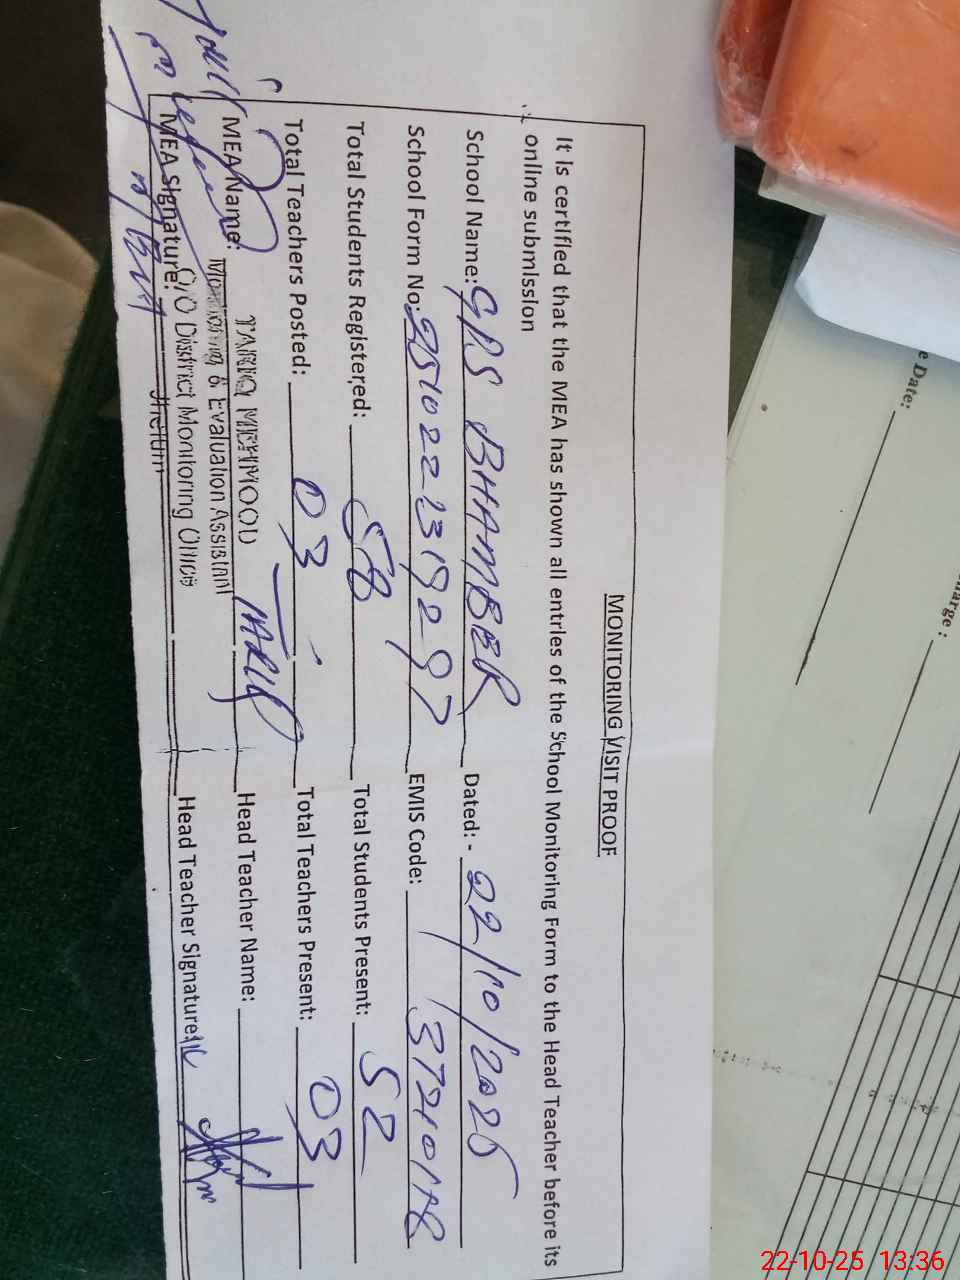 MONITORING VISIT PROOF
It is certified that the MEA has shown all entries of the School Monitoring Form to the Head Teacher before its
online submission
School Name: GPS BHAMBER Dated: - 22/10/2025
School Form No: EMIS Code: 37210178
Total Students Registered: 58 Total Students Present: 52
Total Teachers Posted: 03 Total Teachers Present: 03
MEA Name: TARIQ MEHMOOD TARIQ Head Teacher Name:
Monitoring & Evaluation Assistant
MEA Signature: O/O District Monitoring Office Head Teacher Signature:
Jhelum
e Date:
harge :
22-10-25 13:36